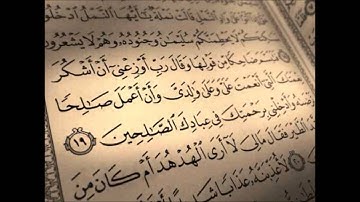 ٱلنَّمْلِ قَالَتْ نَمْلَةٌ يَٰٓأَيُّهَا ٱلنَّمْلُ ٱدْخُلُوا۟
لَا يَحْطِمَنَّكُمْ سُلَيْمَٰنُ وَجُنُودُهُۥ وَهُمْ لَا يَشْعُرُونَ
ضَاحِكًا مِّن قَوْلِهَا وَقَالَ رَبِّ أَوْزِعْنِىٓ أَنْ أَشْكُرَ
نِعْمَتَكَ ٱلَّتِىٓ أَنْعَمْتَ عَلَىَّ وَعَلَىٰ وَٰلِدَىَّ وَأَنْ أَعْمَلَ صَٰلِحًا
تَرْضَىٰهُ وَأَدْخِلْنِى بِرَحْمَتِكَ فِى عِبَادِكَ ٱلصَّٰلِحِينَ ١٩
ٱلطَّيْرَ فَقَالَ مَالِىَ لَآ أَرَى ٱلْهُدْهُدَ أَمْ كَانَ مِنَ
٢٠ لَأُعَذِّبَنَّهُۥ عَذَابًا شَدِيدًا